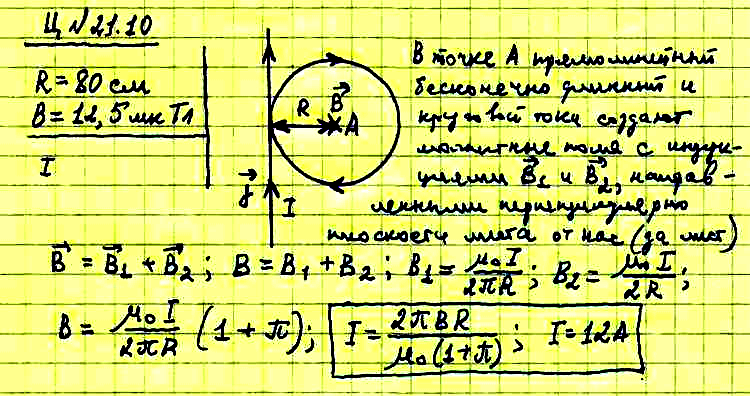 Ц № 21.10
R = 80 см
B = 12,5 мкТл
I
R
B⃗
A
j⃗
I
В точке А прямолинейный
бесконечно длинный и
круговой токи создают
магнитные поля с индук-
циями B⃗₁ и B⃗₂, направ-
ленными перпендикулярно
плоскости листа от нас (за лист)
B⃗ = B⃗₁ + B⃗₂; B = B₁ + B₂; B₁ = μ₀I/2πR; B₂ = μ₀I/2R;
B = μ₀I/2πR (1 + π); I = 2πBR/μ₀(1+π); I = 12А